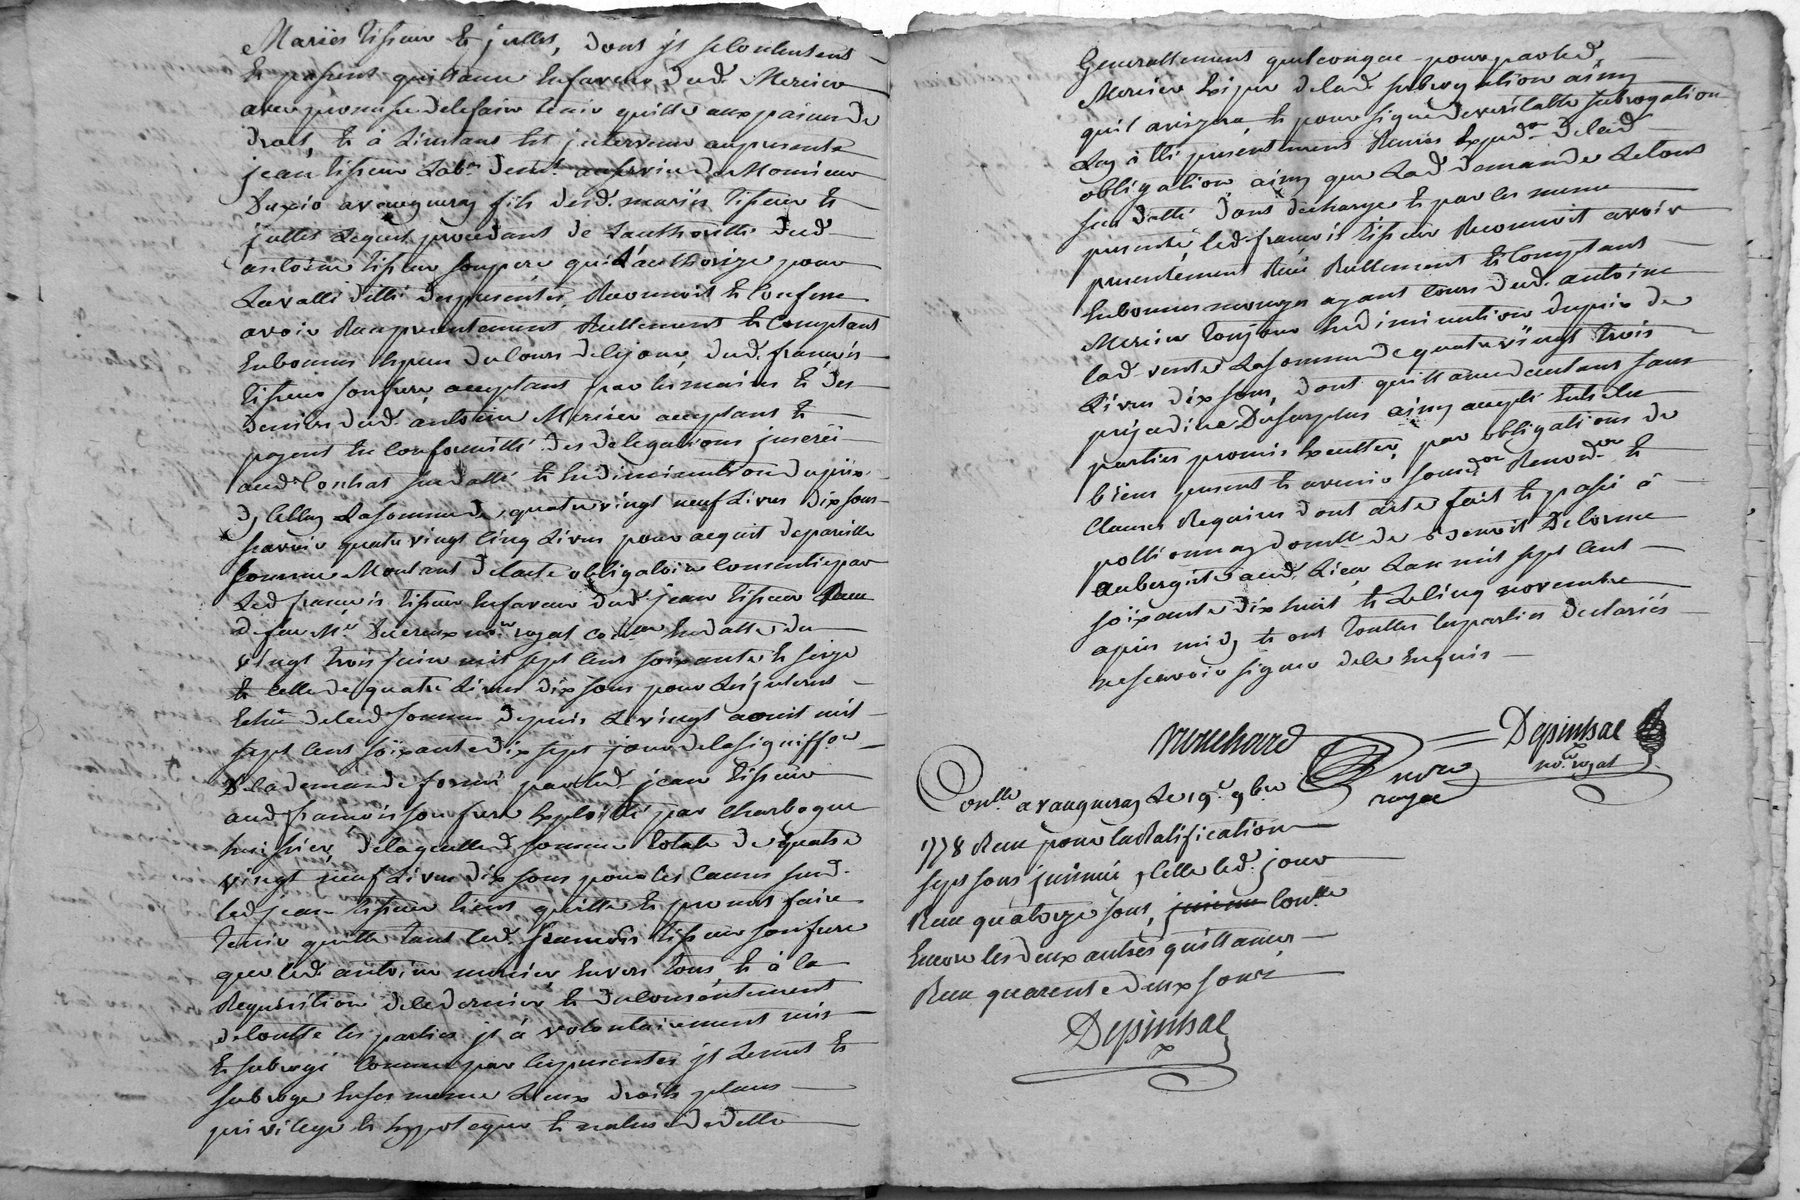 Mariés tisseur et jullet, dont ils se contentent
et passent quittance en faveur dud. Mercier
avec promesse de le faire tenir quitte aux peines de
droit, et à l'instant est intervenu au présent
jean tisseur Labr. demt. au service de Monsieur
avaugneray fils desd. mariés tisseur et
jullet lequel procedant de l'authorité dud
antoine tisseur son pere qui l'authorize pour
la vallitditté des presentes, Reconnoit et Confesse
avoir Reçu presentement Réellement et Comptant
en bonnes espèces du cours de ce jour, dud. françois
tisseur son frere, acceptant par les mains et des
deniers dud. antoine Mercier acceptant et
payant en conformitté des delegations inserées
aud Contrat susdatté et en diminution du prix
d'iceluy la somme de quatre vingt neuf Livres dix sous
sçavoir quatre vingt cinq Livres pour acquit de pareille
somme Montant de l'acte obligatoire consentie par
Led françois tisseur en faveur dud jean tisseur
de feu Me. Ducreux no.re royal en datte du
vingt trois juin mil sept cent soixante et seize
et celle de quatre Livres dix sous pour les interets
de lad somme depuis le vingt aoust mil
sept cent soixante dix sept jour de la signiffon
de la demande formé par led jean tisseur
aud françois son frere exploitté par Charbogne
huissier, de laquelle d. somme totale de quatre
vingt neuf Livres dix sous pour les causes susd.
led jean tisseur tient quitte et promet faire
tenir quitte tant led. françois tisseur son frere
que led. antoine mercier envers tous, et à la
Requisition de ce dernier et du consentement
de toutte les parties il a volontairement mis
et subrogé comme par les presentes il le met et
subroge en ses meme Lieux droits places
privilege et hypoteque et nature de dette
Generallement quelconque pour par led
Mercier user de lad subrogation ainsy
qu'il avizera, et pour signe de veritable subrogation
Luy a été presentement Remis expedon de lad
obligation ainsy que Lad demande Le tout
dont decharge et par les meme
presente led. françois tisseur Reconnoit avoir
presentement Reçu Réellement et Comptant
en bonnes monoyes ayant cours dud. antoine
Mercier toujour en diminution du prix de
lad vente La somme de quatre vingt trois
Livres dix sous, dont quittance d'autant sans
prejudice du surplus ainsy accepté entre les
parties promis executter, par obligations de
biens present et avenir soumons Renonon et
Clauses Requises dont acte fait et passé à
pollionnay domlle de Benoit Delorme
aubergiste aud. Lieu L'an mil sept cent
soixante dix huit et Le cinq novembre
apres midy et ont touttes les parties declarés
ne sçavoir signer de ce enquis
Depinhac
nore royal
nore
royal
Contlé a vaugneray Le 19e 9bre
1778 Reçu pour la Ratification
sept sous insinué icelle led. jour
Reçu quatorze sous, contlé
Encore les deux autres quittances
Reçu quarente deux sous
Depinhac